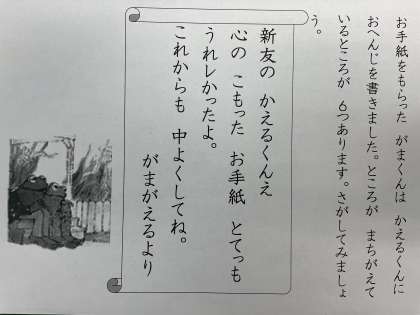 お手紙をもらった がまくんは かえるくんに
おへんじを書きました。ところが まちがえて
いるところが 6つあります。さがしてみましょ
う。
新友の かえるくんえ
心の こもった お手紙 とてっも
うれレかったよ。
これからも 中よくしてね。
がまがえるより